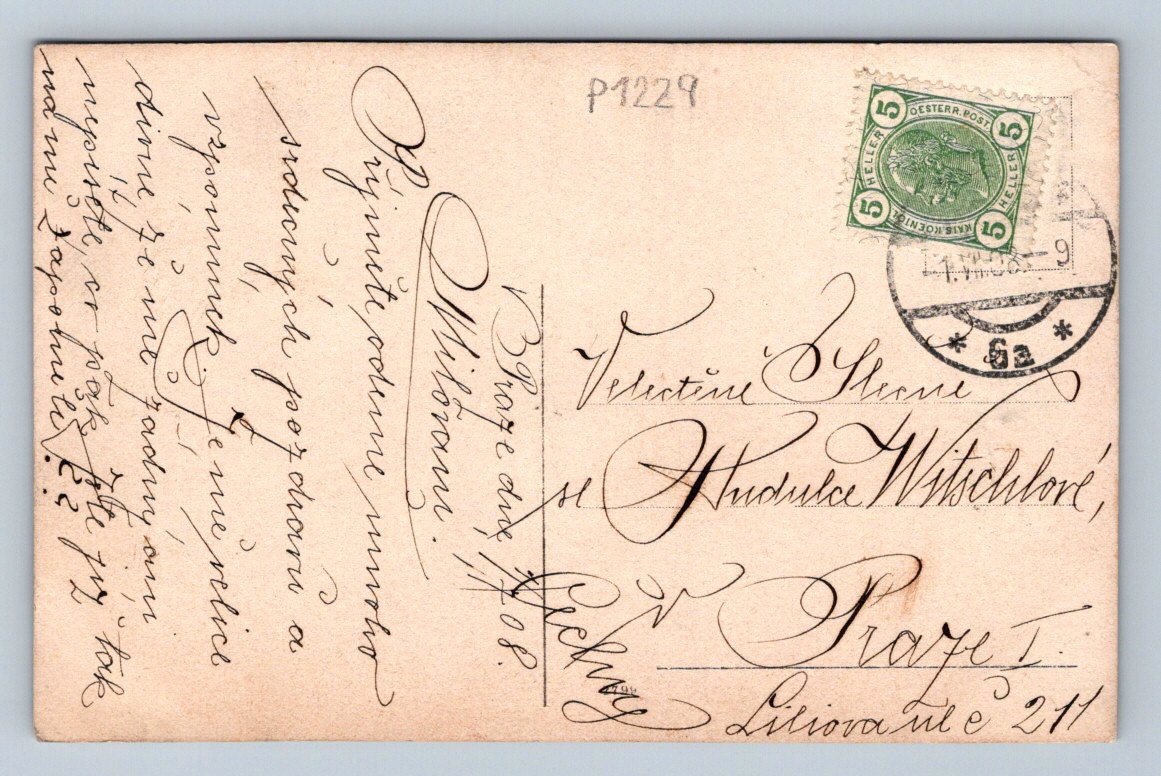 P1229
V Praze dne 1/7 08.
Milovaní.
Přijměte odemne mnoho
srdečných pozdravů a
vzpomínek. Je mě velice
divné že mě žádný ani
nepíšete, co pak jste již tak
na mě zapoměli!??
5 OESTERR. POST. 5
HELLER HELLER
5 KAIS. KOENIGL. 5
1.VII.08.-9
* 6a *
Velectěné Slečně
sl Andulce Witschlové,
v Praze I.
Liliova ul č 211